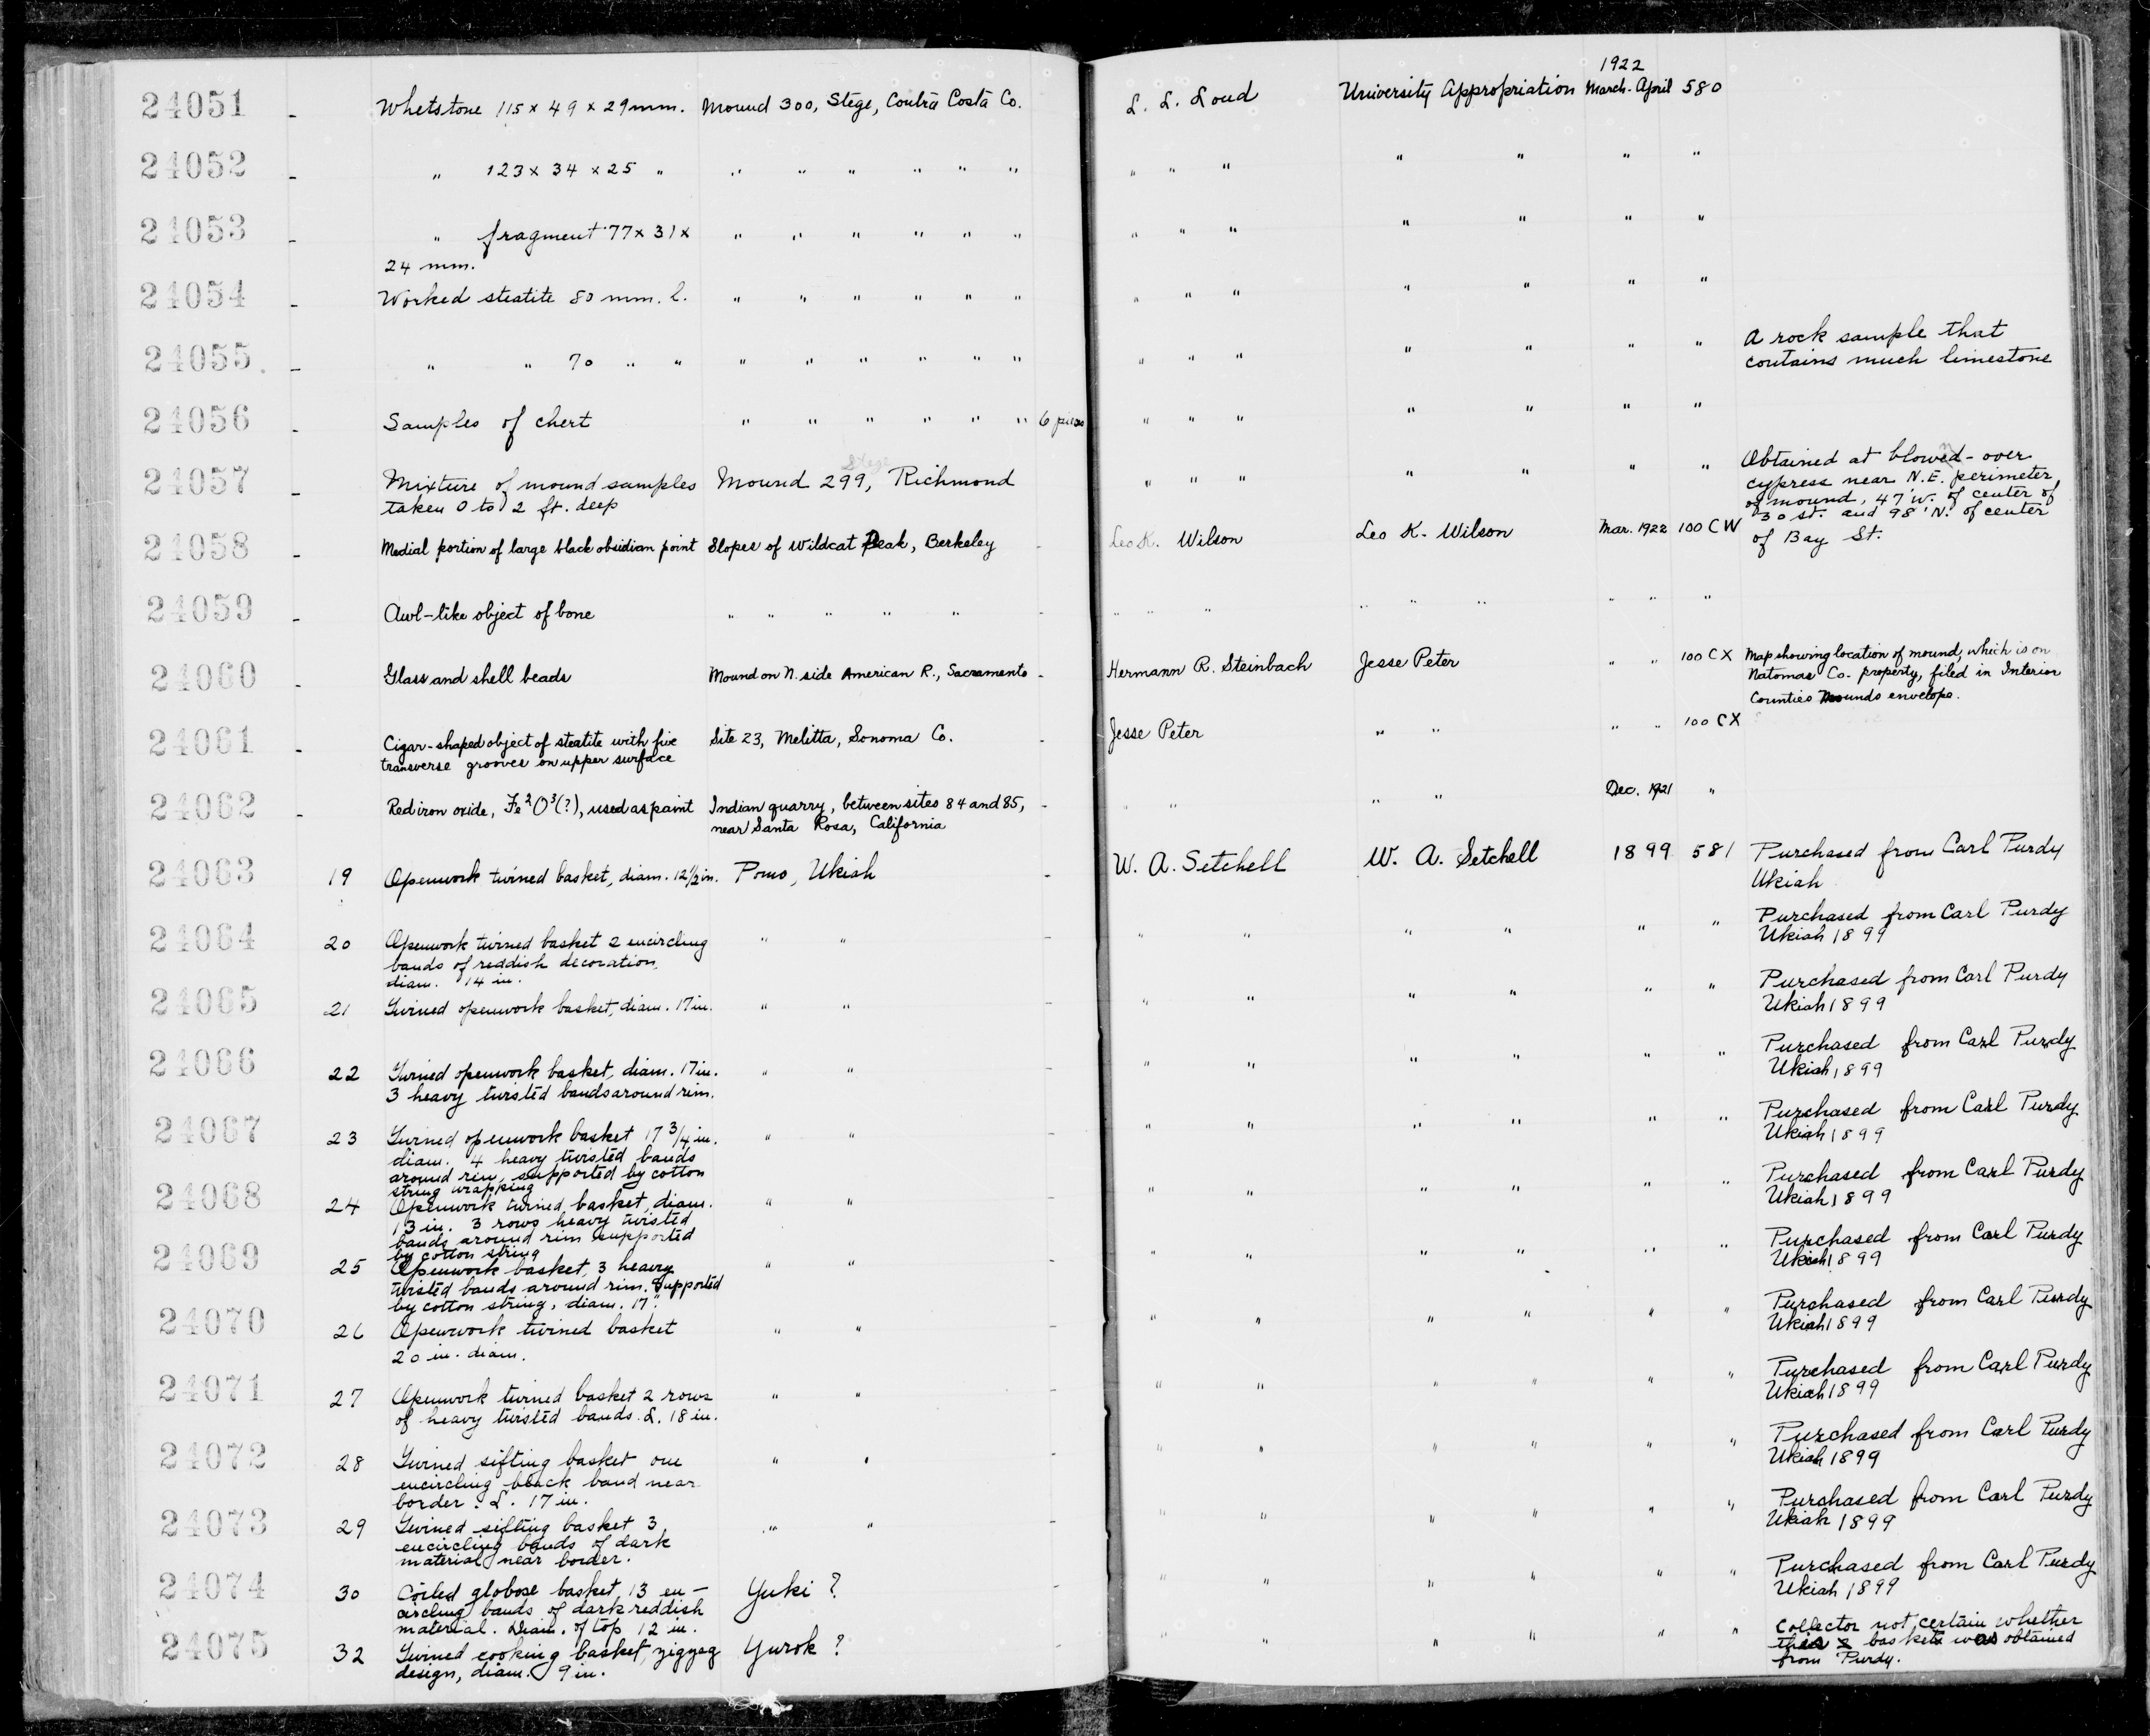 1922
24051 - Whetstone 115 x 49 x 29 mm. Mound 300, Stege, Contra Costa Co. L. L. Loud University Appropriation March-April 580
24052 - " 123 x 34 x 25 " " " " " " " " " " " " " "
24053 - " fragment 77 x 31 x " " " " " " " " " " " " "
24 mm.
24054 - Worked steatite 80 mm. l. " " " " " " " " " " " " "
24055 - " " 70 " " " " " " " " " " " " " " " A rock sample that
contains much limestone
24056 - Samples of chert " " " " " " 6 pieces " " " " " " "
24057 - Mixture of mound samples Mound 299, Stege Richmond " " " " " " " Obtained at blowed-over
taken 0 to 2 ft. deep cypress near N.E. perimeter
of mound, 47' W. of center of
30 St. and 98' N. of center
of Bay St.
24058 - Medial portion of large black obsidian point Slopes of Wildcat Peak, Berkeley Leo K. Wilson Leo K. Wilson Mar. 1922 100 CW
24059 - Awl-like object of bone " " " " " - " " " " " " " " "
24060 - Glass and shell beads Mound on N. side American R., Sacramento - Hermann R. Steinbach Jesse Peter " " 100 CX Map showing location of mound, which is on
Natomas Co. property, filed in Interior
Counties Mounds envelope.
24061 - Cigar-shaped object of steatite with five Site 23, Melitta, Sonoma Co. - Jesse Peter " " " " 100 CX
transverse grooves on upper surface
24062 - Red iron oxide, Fe2O3(?), used as paint Indian quarry, between sites 84 and 85, - " " " " Dec. 1921 "
near Santa Rosa, California
24063 19 Openwork twined basket, diam. 12 1/2 in. Pomo, Ukiah - W. A. Setchell W. A. Setchell 1899 581 Purchased from Carl Purdy
Ukiah
24064 20 Openwork twined basket 2 encircling " " - " " " " " " Purchased from Carl Purdy
bands of reddish decoration Ukiah 1899
diam. 14 in.
24065 21 Twined openwork basket, diam. 17 in. " " - " " " " " " Purchased from Carl Purdy
Ukiah 1899
24066 22 Twined openwork basket, diam. 17 in. " " - " " " " " " Purchased from Carl Purdy
3 heavy twisted bands around rim. Ukiah 1899
24067 23 Twined openwork basket 17 3/4 in. " " - " " " " " " Purchased from Carl Purdy
diam. 4 heavy twisted bands Ukiah 1899
around rim, supported by cotton
string wrapping
24068 24 Openwork twined basket, diam. " " - " " " " " " Purchased from Carl Purdy
13 in. 3 rows heavy twisted Ukiah 1899
bands around rim supported
by cotton string
24069 25 Openwork basket, 3 heavy " " - " " " " " " Purchased from Carl Purdy
twisted bands around rim. Supported Ukiah 1899
by cotton string, diam. 17".
24070 26 Openwork twined basket " " - " " " " " " Purchased from Carl Purdy
20 in. diam. Ukiah 1899
24071 27 Openwork twined basket 2 rows " " - " " " " " " Purchased from Carl Purdy
of heavy twisted bands. L. 18 in. Ukiah 1899
24072 28 Twined sifting basket one " " - " " " " " " Purchased from Carl Purdy
encircling black band near Ukiah 1899
border. L. 17 in.
24073 29 Twined sifting basket 3 " " - " " " " " " Purchased from Carl Purdy
encircling bands of dark Ukiah 1899
material near border.
24074 30 Coiled globose basket, 13 en- Yuki ? - " " " " " " Purchased from Carl Purdy
circling bands of dark reddish Ukiah 1899
material. Diam. of top 12 in.
24075 32 Twined cooking basket, zigzag Yurok ? - " " " " " " Collector not certain whether
design, diam. 9 in. this basket was obtained
from Purdy.